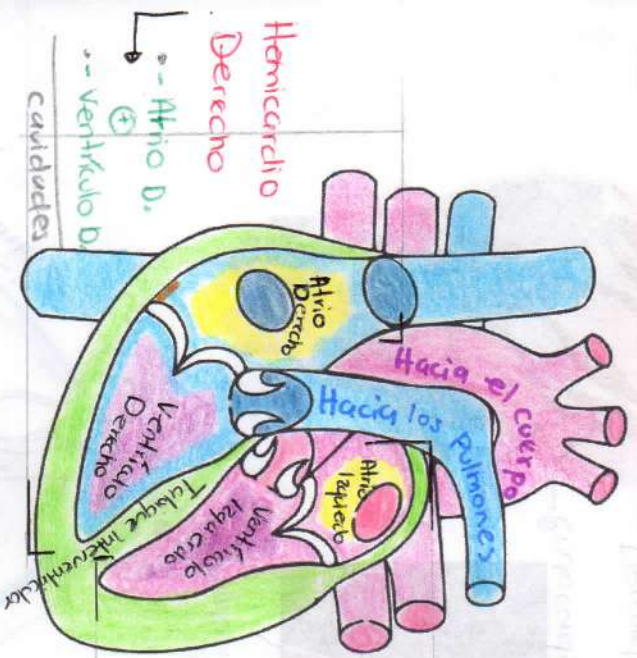 Hemicardio
Derecho
- Atrio D.
+
- Ventrículo D.
cavidades
Atrio
Derecho
Ventrículo
Derecho
Hacia el cuerpo
Hacia los pulmones
Atrio
Izquierdo
Ventrículo
Izquierdo
Tabique interventricular